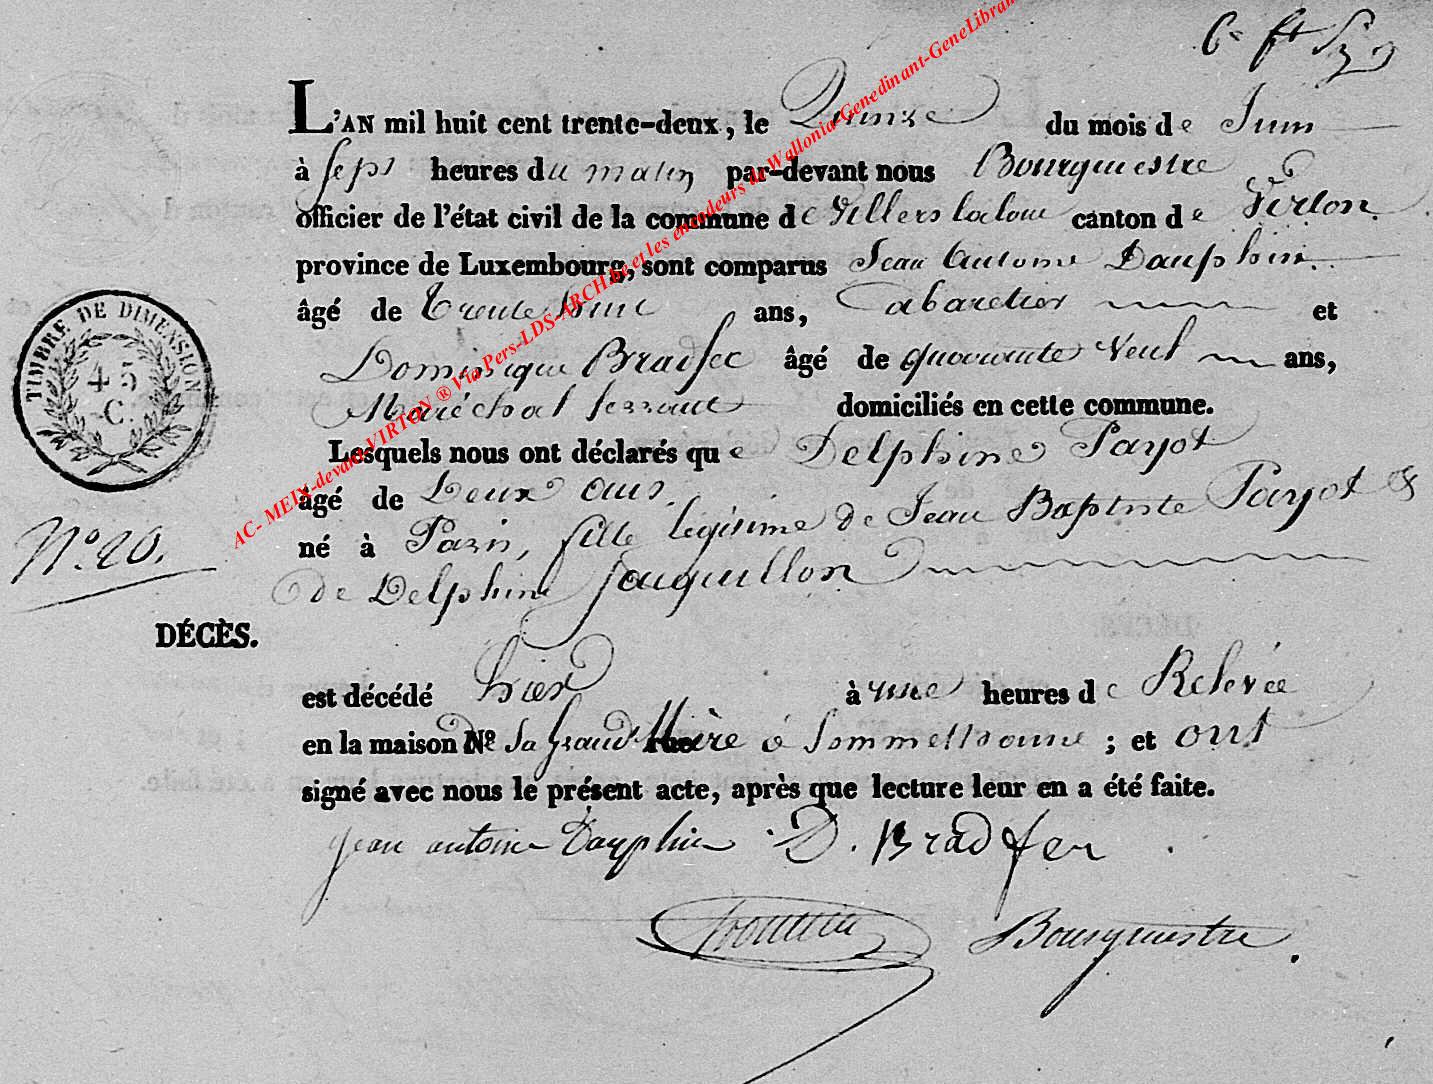 L'AN mil huit cent trente-deux, le Quinze du mois de Juin
à Sept heures du matin par-devant nous Bourguestre
officier de l'état civil de la commune de Villers laloue canton de Virton.
province de Luxembourg, sont comparus Jean Antoine Dauphin.
âgé de Trente huit ans, Cabaretier et
Dominique Bradfer âgé de quarante neuf ans,
Maréchal ferrant domiciliés en cette commune.
Lesquels nous ont déclarés que Delphine Payot
âgé de Deux ans
né à Paris, fille legitime de Jean Baptiste Payot &
de Delphine Jauquillon
N° 20.
DÉCÈS.
est décédé hier à une heures de Relevée
en la maison de Sa Grand Mère à Sommethonne ; et ont
signé avec nous le présent acte, après que lecture leur en a été faite.
Jean antoine Dauphin D. Bradfer
Bourguestre
TIMBRE DE DIMENSION
45
C.
AC- MEIX-devant-VIRTON ® Via Pers-LDS-ARCH.be et les encodeurs de Wallonia-Genedinant-GeneLibran